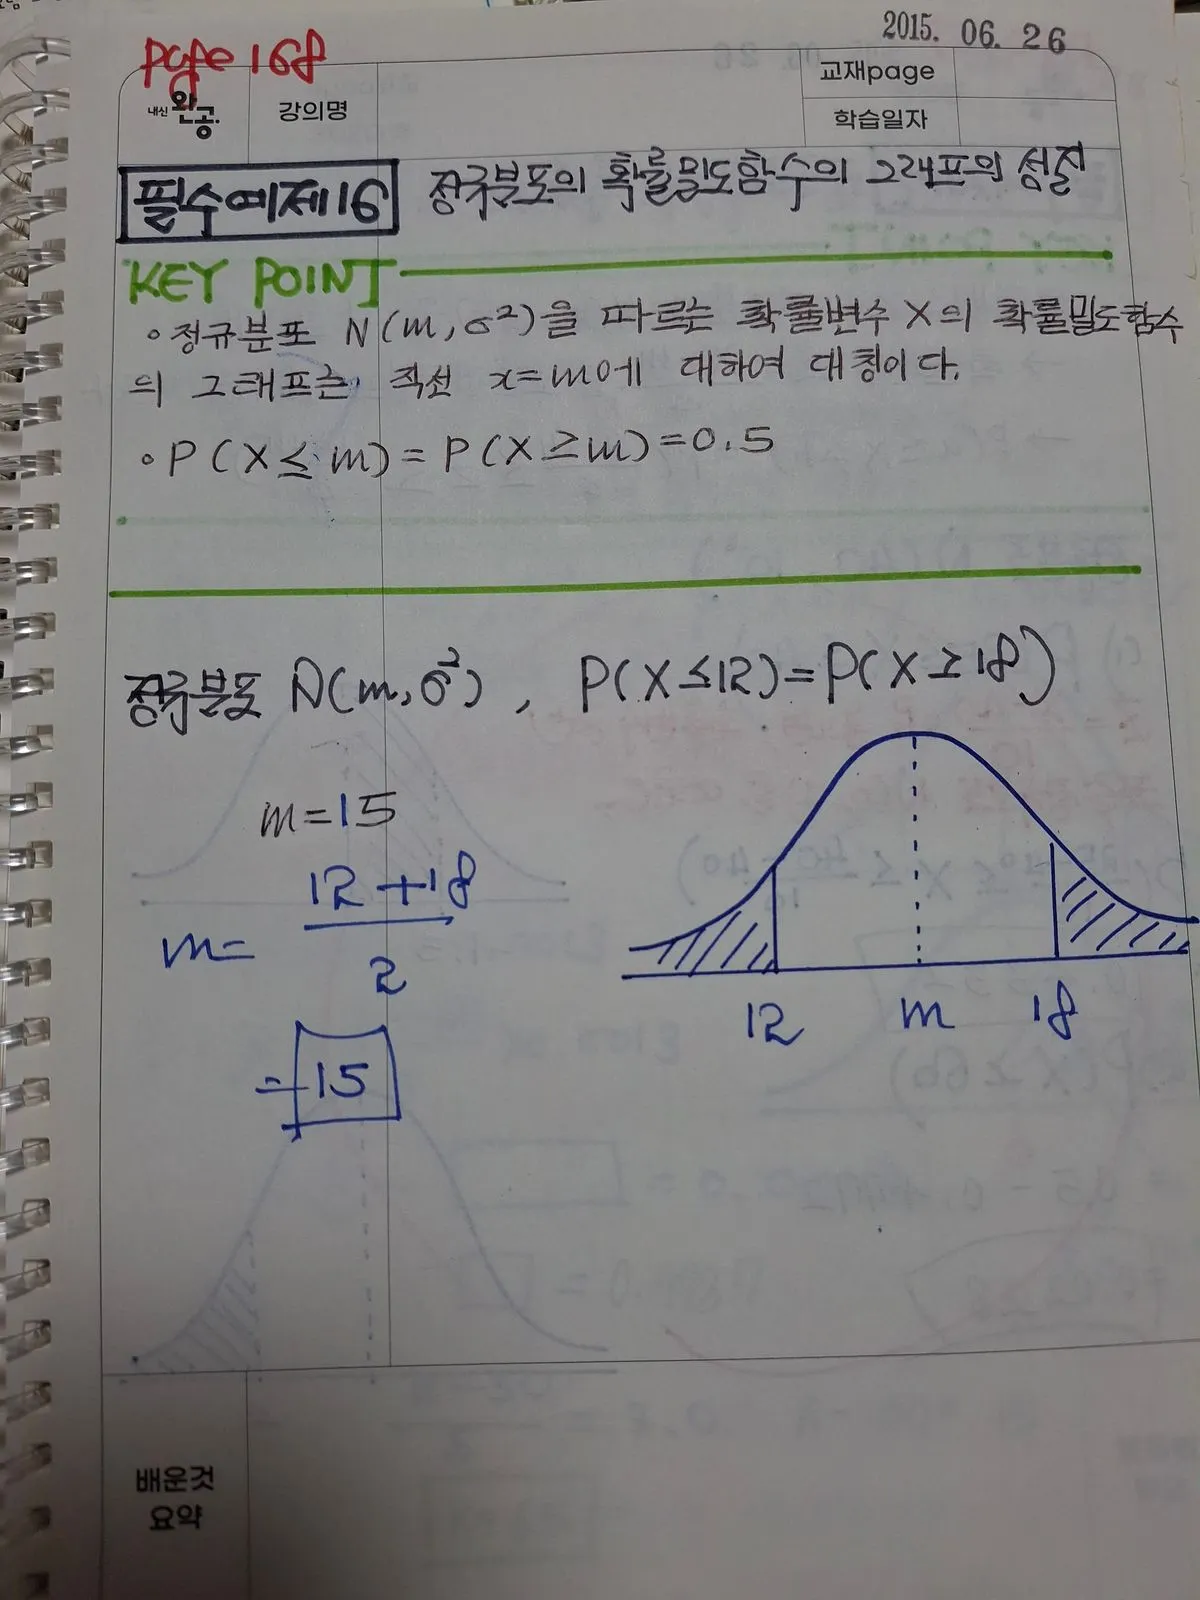 2015. 06. 26
page 168
교재page
내신 완공.
강의명
학습일자
필수예제16 정규분포의 확률밀도함수의 그래프의 성질
KEY POINT
◦정규분포 N(m, σ²)을 따르는 확률변수 X의 확률밀도함수
의 그래프는 직선 x=m에 대하여 대칭이다.
◦P(X≤m)=P(X≥m)=0.5
정규분포 N(m, σ²), P(X≤12)=P(X≥18)
m=15
m= (12+18)/2
=15
12 m 18
배운것
요약